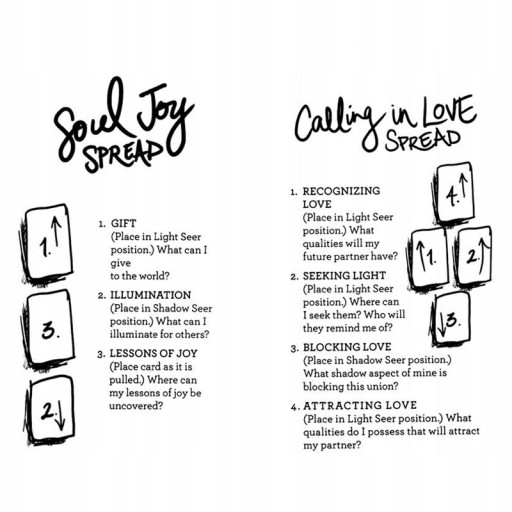 Soul Joy
SPREAD
1.
3.
2.
1. GIFT
(Place in Light Seer
position.) What can I
give
to the world?
2. ILLUMINATION
(Place in Shadow Seer
position.) What can I
illuminate for others?
3. LESSONS OF JOY
(Place card as it is
pulled.) Where can
my lessons of joy be
uncovered?
Calling in LOVE
SPREAD
4.
1.
2.
3.
1. RECOGNIZING
LOVE
(Place in Light Seer
position.) What
qualities will my
future partner have?
2. SEEKING LIGHT
(Place in Light Seer
position.) Where can
I seek them? Who will
they remind me of?
3. BLOCKING LOVE
(Place in Shadow Seer position.)
What shadow aspect of mine is
blocking this union?
4. ATTRACTING LOVE
(Place in Light Seer position.) What
qualities do I possess that will attract
my partner?